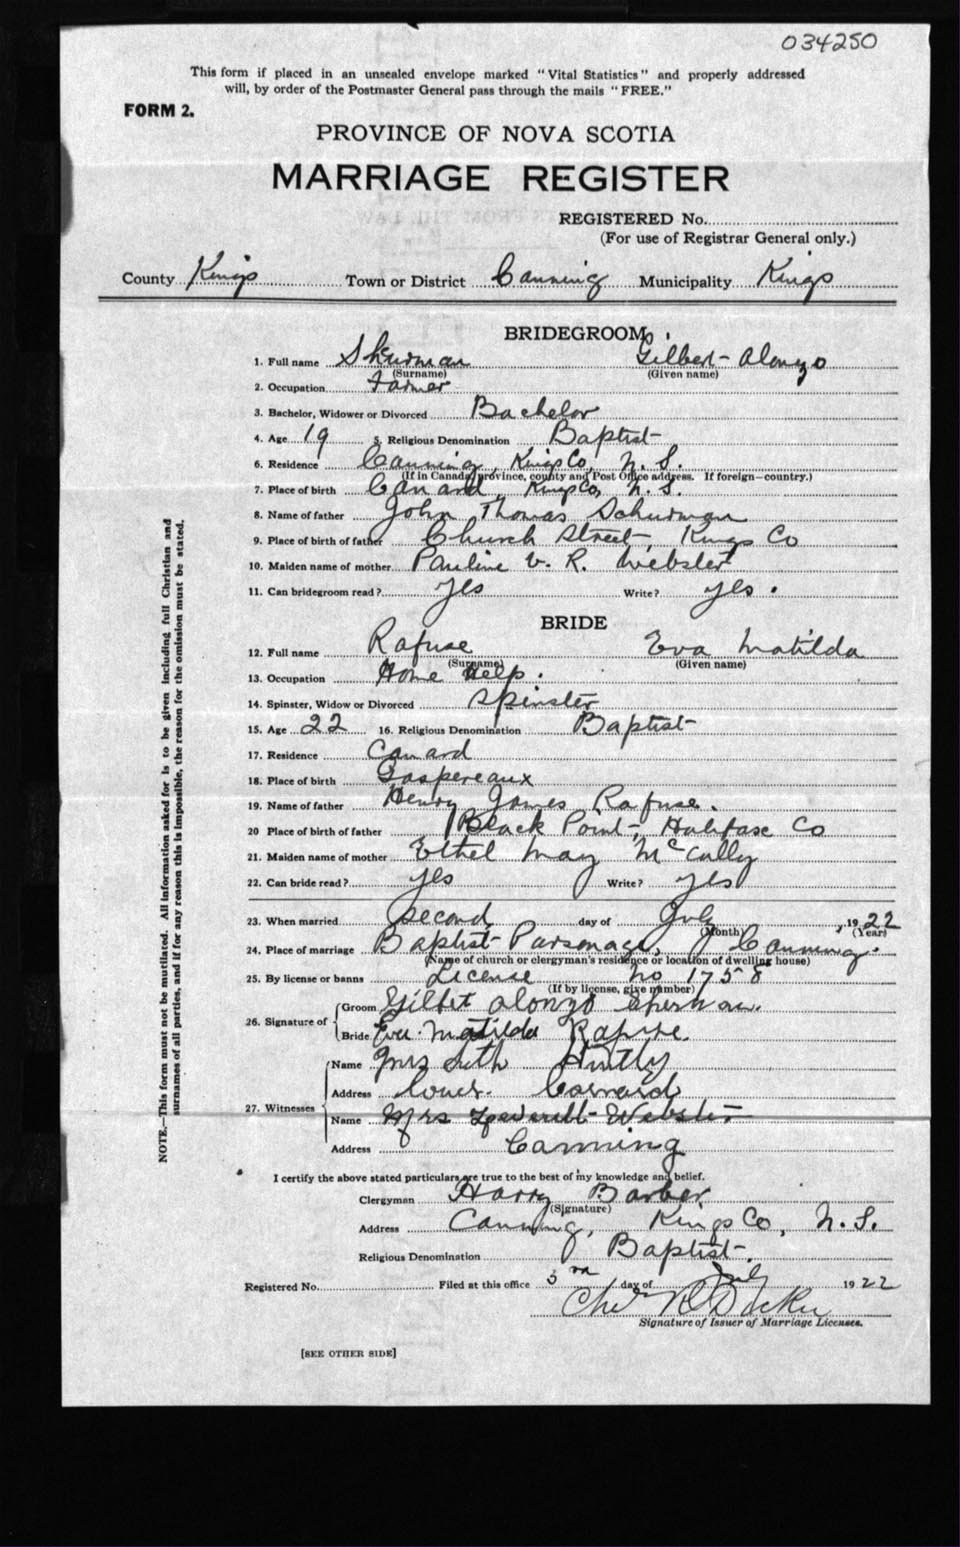 034250
This form if placed in an unsealed envelope marked "Vital Statistics" and properly addressed
will, by order of the Postmaster General pass through the mails "FREE."
FORM 2.
PROVINCE OF NOVA SCOTIA
MARRIAGE REGISTER
REGISTERED No.
(For use of Registrar General only.)
County Kings Town or District Canning Municipality Kings
BRIDEGROOM
1. Full name Skurman Gilbert Alonzo
(Surname) (Given name)
2. Occupation Farmer
3. Bachelor, Widower or Divorced Bachelor
4. Age 19 5. Religious Denomination Baptist
6. Residence Canning, Kings Co, N. S.
(If in Canada, province, county and Post Office address. If foreign—country.)
7. Place of birth Canard, Kings Co, N. S.
8. Name of father John Thomas Schurman
9. Place of birth of father Church Street, Kings Co
10. Maiden name of mother Pauline V. R. Webster
11. Can bridegroom read? yes Write? yes.
BRIDE
12. Full name Rafuse Eva Matilda
(Surname) (Given name)
13. Occupation Home Help.
14. Spinster, Widow or Divorced Spinster
15. Age 22 16. Religious Denomination Baptist
17. Residence Canard
18. Place of birth Gaspereaux
19. Name of father Henry James Rafuse.
20 Place of birth of father Black Point, Halifax Co
21. Maiden name of mother Ethel May McCully
22. Can bride read? yes Write? yes
23. When married second day of July 1922
(Month) (Year)
24. Place of marriage Baptist Parsonage, Canning.
(Name of church or clergyman's residence or location of dwelling house)
25. By license or banns License No 1758
(If by license, give number)
26. Signature of Groom Gilbet Alonzo
Bride Eva Matilda Rafuse.
27. Witnesses Name Mrs Seth Huntly
Address Canard
Name Mrs Webster
Address Canning
I certify the above stated particulars are true to the best of my knowledge and belief.
Clergyman Harry Barber
(Signature)
Address Canning, Kings Co, N. S.
Religious Denomination Baptist.
Registered No. Filed at this office 3rd day of July 1922
Signature of Issuer of Marriage Licenses.
[SEE OTHER SIDE]
NOTE.—This form must not be mutilated. All information asked for is to be given including full Christian and
surnames of all parties, and if for any reason this is impossible, the reason for the omission must be stated.